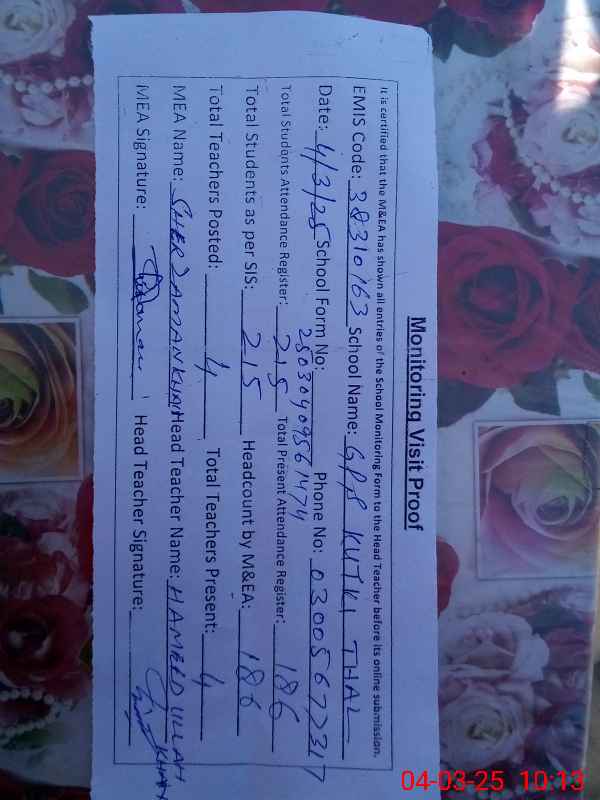 Monitoring Visit Proof
It is certified that the M&EA has shown all entries of the School Monitoring Form to the Head Teacher before its online submission.
EMIS Code: 38310163 School Name: GPS KUTKI THAL
Date: 4/3/25 School Form No: 25030409561474 Phone No: 03005677317
Total Students Attendance Register: 215 Total Present Attendance Register: 186
Total Students as per SIS: 215 Headcount by M&EA: 186
Total Teachers Posted: 4 Total Teachers Present: 4
MEA Name: SHER ZAMAN KHAN Head Teacher Name: HAMEED ULLAH KHAN
MEA Signature: Head Teacher Signature:
04-03-25 10:13